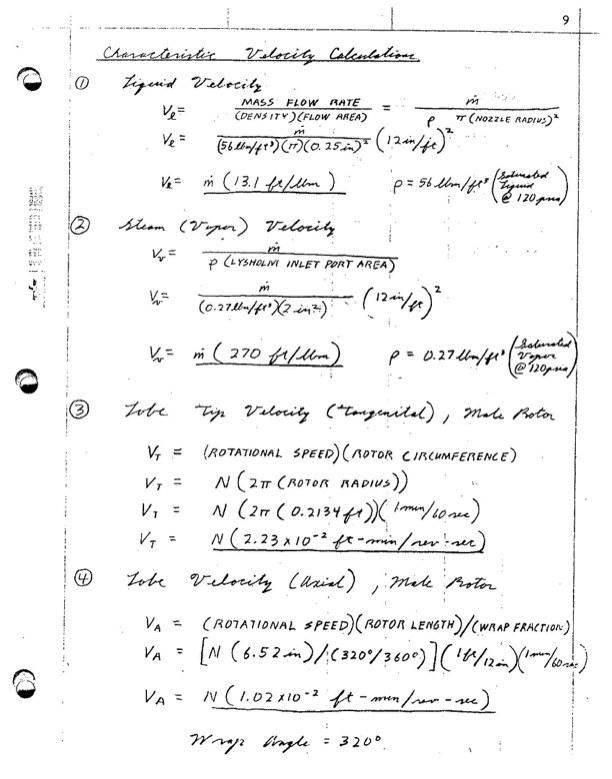 9
Characteristic Velocity Calculations
① Liquid Velocity
Vℓ = MASS FLOW RATE / (DENSITY)(FLOW AREA) = ṁ / ρ π (NOZZLE RADIUS)²
Vℓ = ṁ / (56 lbm/ft³)(π)(0.25 in)² (12 in/ft)²
Vℓ = ṁ (13.1 ft/lbm) ρ = 56 lbm/ft³ (Saturated Liquid @ 120 psia)
② Steam (Vapor) Velocity
Vv = ṁ / ρ (LYSHOLM INLET PORT AREA)
Vv = ṁ / (0.27 lbm/ft³)(2 in²) (12 in/ft)²
Vv = ṁ (270 ft/lbm) ρ = 0.27 lbm/ft³ (Saturated Vapor @ 120 psia)
③ Lobe Tip Velocity (tangenital), Male Rotor
VT = (ROTATIONAL SPEED)(ROTOR CIRCUMFERENCE)
VT = N (2π (ROTOR RADIUS))
VT = N (2π (0.2134 ft))(1 min/60 sec)
VT = N (2.23 x 10⁻² ft-min/rev-sec)
④ Lobe Velocity (Axial), Male Rotor
VA = (ROTATIONAL SPEED)(ROTOR LENGTH)/(WRAP FRACTION)
VA = [N (6.52 in)/(320°/360°)](1 ft/12 in)(1 min/60 sec)
VA = N (1.02 x 10⁻² ft-min/rev-sec)
Wrap Angle = 320°